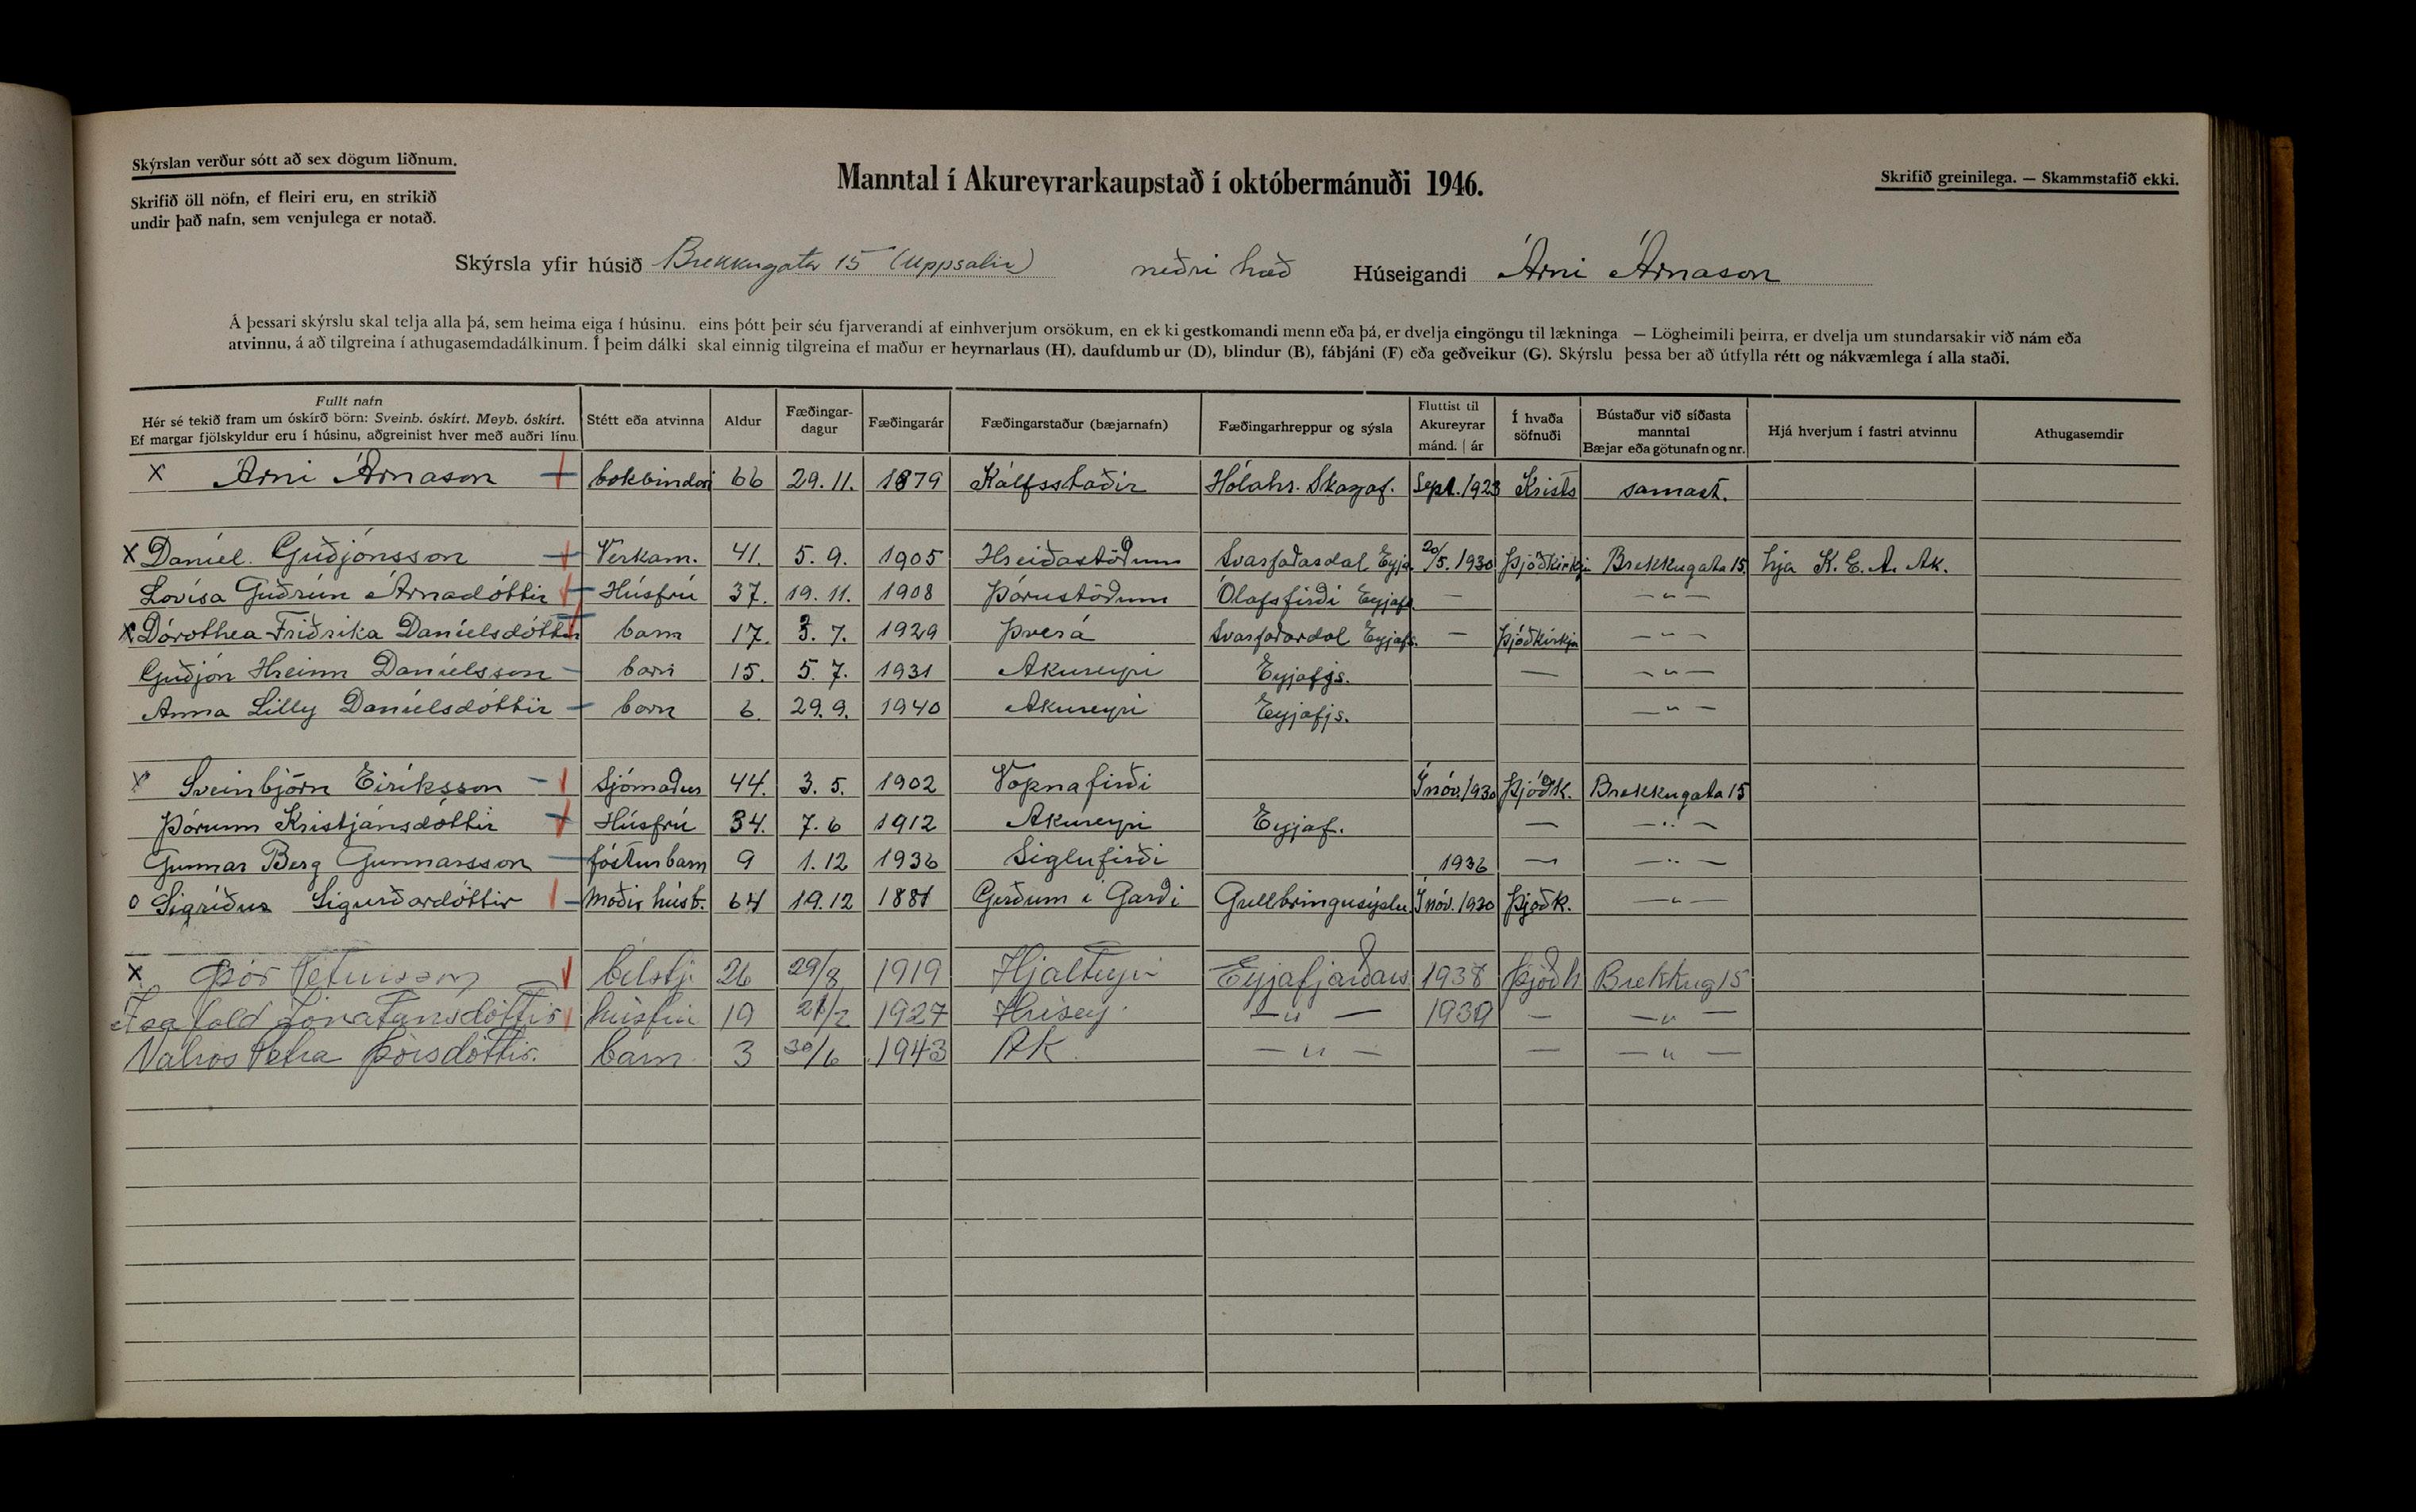 Skýrslan verður sótt að sex dögum liðnum.
Skrifið öll nöfn, ef fleiri eru, en strikið
undir það nafn, sem venjulega er notað.
Manntal í Akureyrarkaupstað í októbermánuði 1946.
Skrifið greinilega. — Skammstafið ekki.
Skýrsla yfir húsið Brekkugata 15 (Uppsalir) neðri hæð Húseigandi Árni Árnason
Á þessari skýrslu skal telja alla þá, sem heima eiga í húsinu, eins þótt þeir séu fjarverandi af einhverjum orsökum, en ekki gestkomandi menn eða þá, er dvelja eingöngu til lækninga — Lögheimili þeirra, er dvelja um stundarsakir við nám eða
atvinnu, á að tilgreina í athugasemdadálkinum. Í þeim dálki skal einnig tilgreina ef maður er heyrnarlaus (H), daufdumbur (D), blindur (B), fábjáni (F) eða geðveikur (G). Skýrslu þessa ber að útfylla rétt og nákvæmlega í alla staði.
Fullt nafn Hér sé tekið fram um óskírð börn: Sveinb. óskírt. Meyb. óskírt. Ef margar fjölskyldur eru í húsinu, aðgreinist hver með auðri línu. Stétt eða atvinna Aldur Fæðingar-dagur Fæðingarár Fæðingarstaður (bæjarnafn) Fæðingarhreppur og sýsla Fluttist til Akureyrar mánd. ár Í hvaða söfnuði Bústaður við síðasta manntal Bæjar eða götunafn og nr. Hjá hverjum í fastri atvinnu Athugasemdir
x Árni Árnason bokbindari 66 29. 11. 1879 Kálfsstaðir Hólahr. Skagaf. Sept. 1923 Krists samast.
x Daníel Guðjónsson Verkam. 41. 5. 9. 1905 Hreiðastöðum Svarfaðardal Eyjaf. 20/5. 1930 Þjóðkirkju Brekkugata 15. hjá K. E. A. Ak.
Lovísa Guðrún Árnadóttir Húsfrú 37. 19. 11. 1908 Þórustöðum Ólafsfirði Eyjafj. — — " —
x Dórothea Friðrika Daníelsdóttir barn 17. 3. 7. 1929 Þverá Svarfaðardal Eyjafj. — Þjóðkirkja — " —
Guðjón Hreinn Daníelsson barn 15. 5. 7. 1931 Akureyri Eyjafjs. — — " —
Anna Lilly Daníelsdóttir barn 6. 29. 9. 1940 Akureyri Eyjafjs. — " —
x Sveinbjörn Eiríksson Sjómaður 44. 3. 5. 1902 Vopnafirði Í nóv. 1930 Þjóðk. Brekkugata 15
Þórunn Kristjánsdóttir Húsfrú 34. 7. 6 1912 Akureyri Eyjaf. — — " —
Gunnar Berg Gunnarsson fósturbarn 9 1. 12 1936 Siglufirði 1936 — — " —
o Sigríður Sigurðardóttir Móðir húsb. 64 19. 12 1881 Gerðum í Garði Gullbringusýslu Í nóv. 1930 Þjóðk. — " —
x Þór Pétursson bílstj. 26 29/8 1919 Hjalteyri Eyjafjarðars 1938 Þjóðk Brekkug 15
Ísafold Jónatansdóttir húsfrú 19 21/2 1927 Hrísey — " — 1939 — — " —
Valrós Petra Þórsdóttir. barn 3 30/6 1943 Ak. — " — — — " —